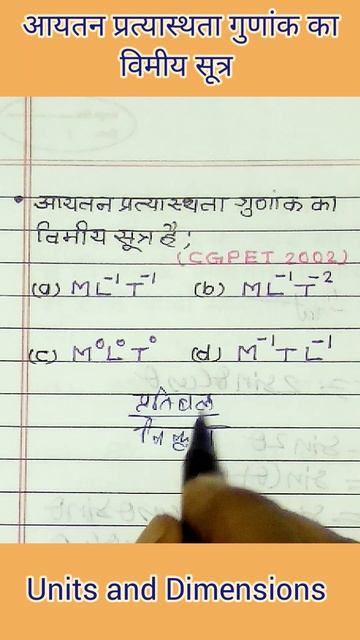 आयतन प्रत्यास्थता गुणांक का
विमीय सूत्र
• आयतन प्रत्यास्थता गुणांक का
विमीय सूत्र है;
(CGPET 2002)
(a) ML⁻¹T⁻¹ (b) ML⁻¹T⁻²
(c) M⁰L⁰T⁰ (d) M⁻¹TL⁻¹
प्रतिबल
Units and Dimensions